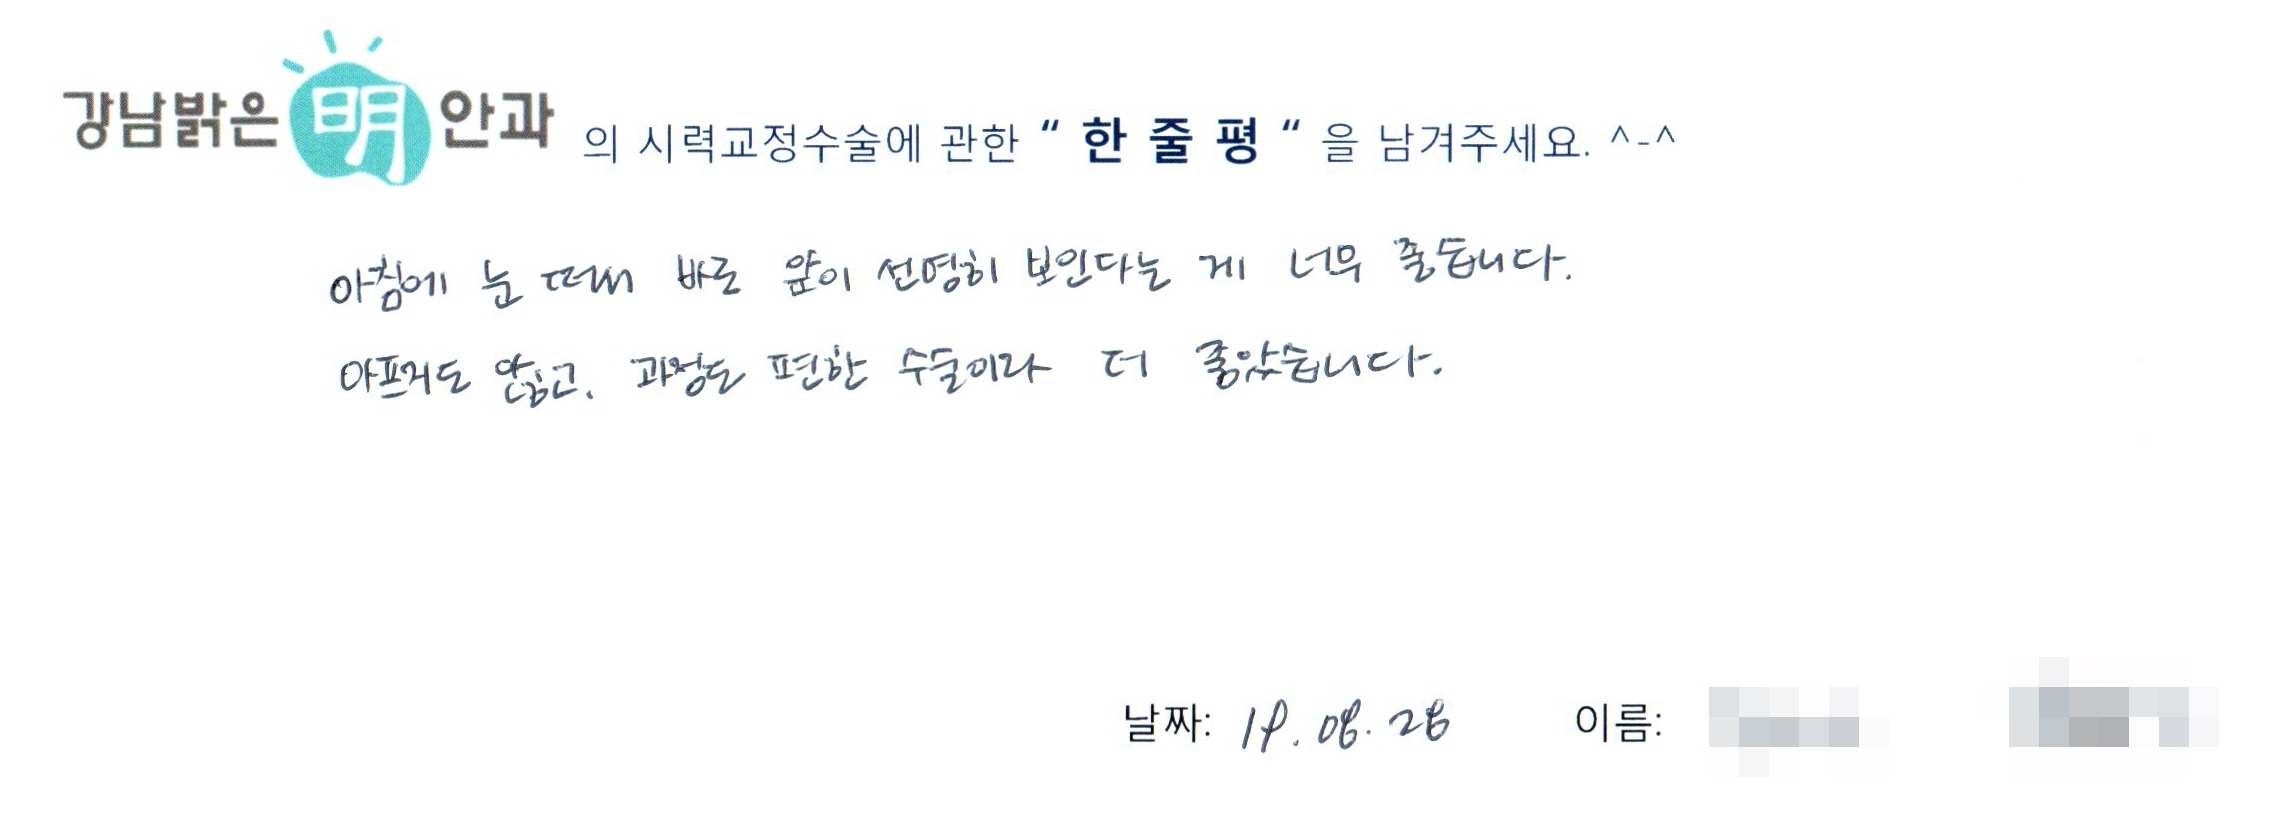 강남밝은明안과 의 시력교정수술에 관한 “ 한 줄 평 “ 을 남겨주세요. ^-^
아침에 눈 떠서 바로 앞이 선명히 보인다는 게 너무 좋습니다.
아프지도 않고, 과정도 편한 수술이라 더 좋았습니다.
날짜: 19. 08. 28 이름: